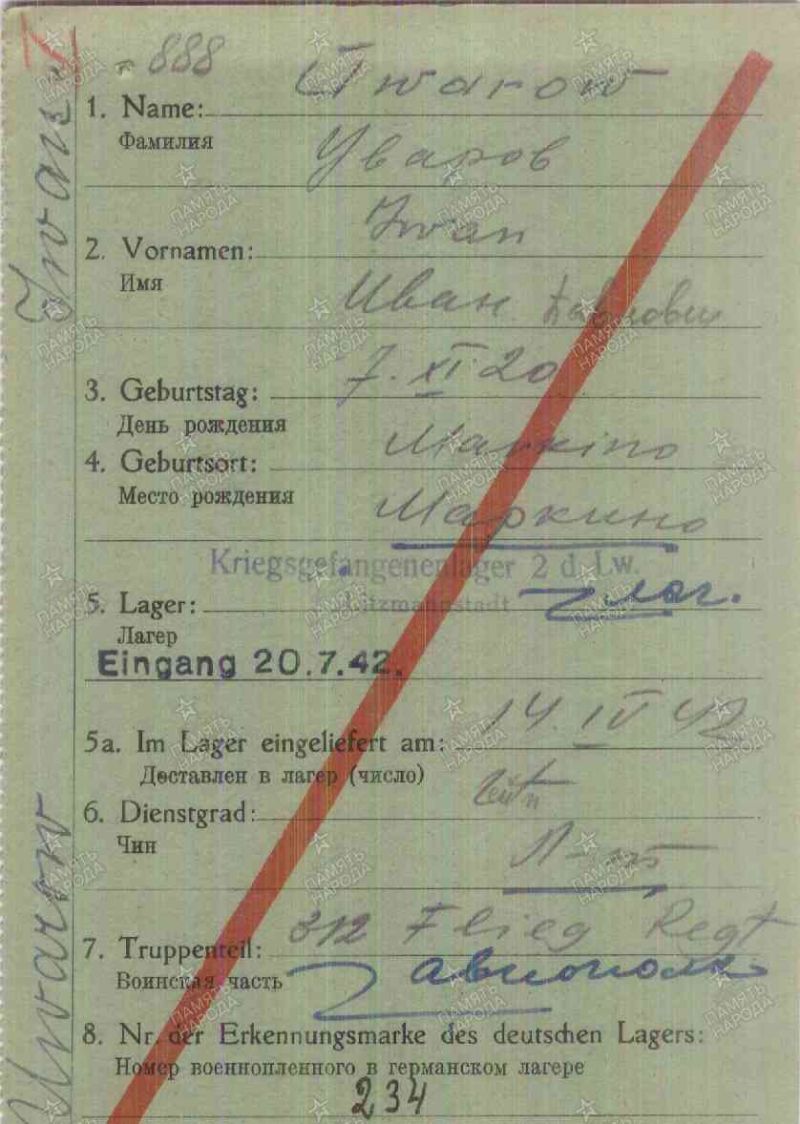 888
Uwarow
1. Name:
Фамилия
Уваров
Iwan
2. Vornamen:
Имя
Иван Павлович
7. XI 20
3. Geburtstag:
День рождения
Markino
4. Geburtsort:
Место рождения
Маркино
Kriegsgefangenenlager 2 d. Lw.
Litzmannstadt
5. Lager:
лаг.
Лагер
Eingang 20.7.42.
14. IV 42
5a. Im Lager eingeliefert am:
Доставлен в лагер (число)
Leutn
6. Dienstgrad:
Чин
Л-нт
312 Flieg Regt
7. Truppenteil:
Воинская часть
авиополк
8. Nr. der Erkennungsmarke des deutschen Lagers:
Номер военнопленного в германском лагере
234
Uwarow Iwan
ПАМЯТЬ НАРОДА